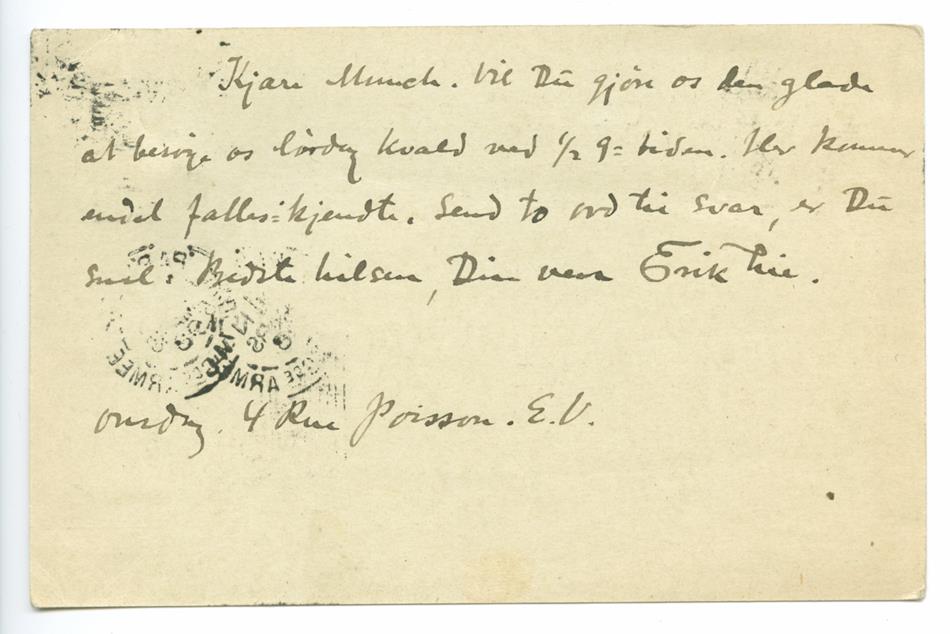 Kjære Munch. Vil Du gjöre os den glæde
at besöge os lördag kvæld ved 1/2 9= tiden. Her kommer
endel fælles=kjendte. Send to ord til svar, er Du
snil. Bedste hilsen, Din ven Erik Lie.
onsdag. 4 Rue Poisson. E.V.